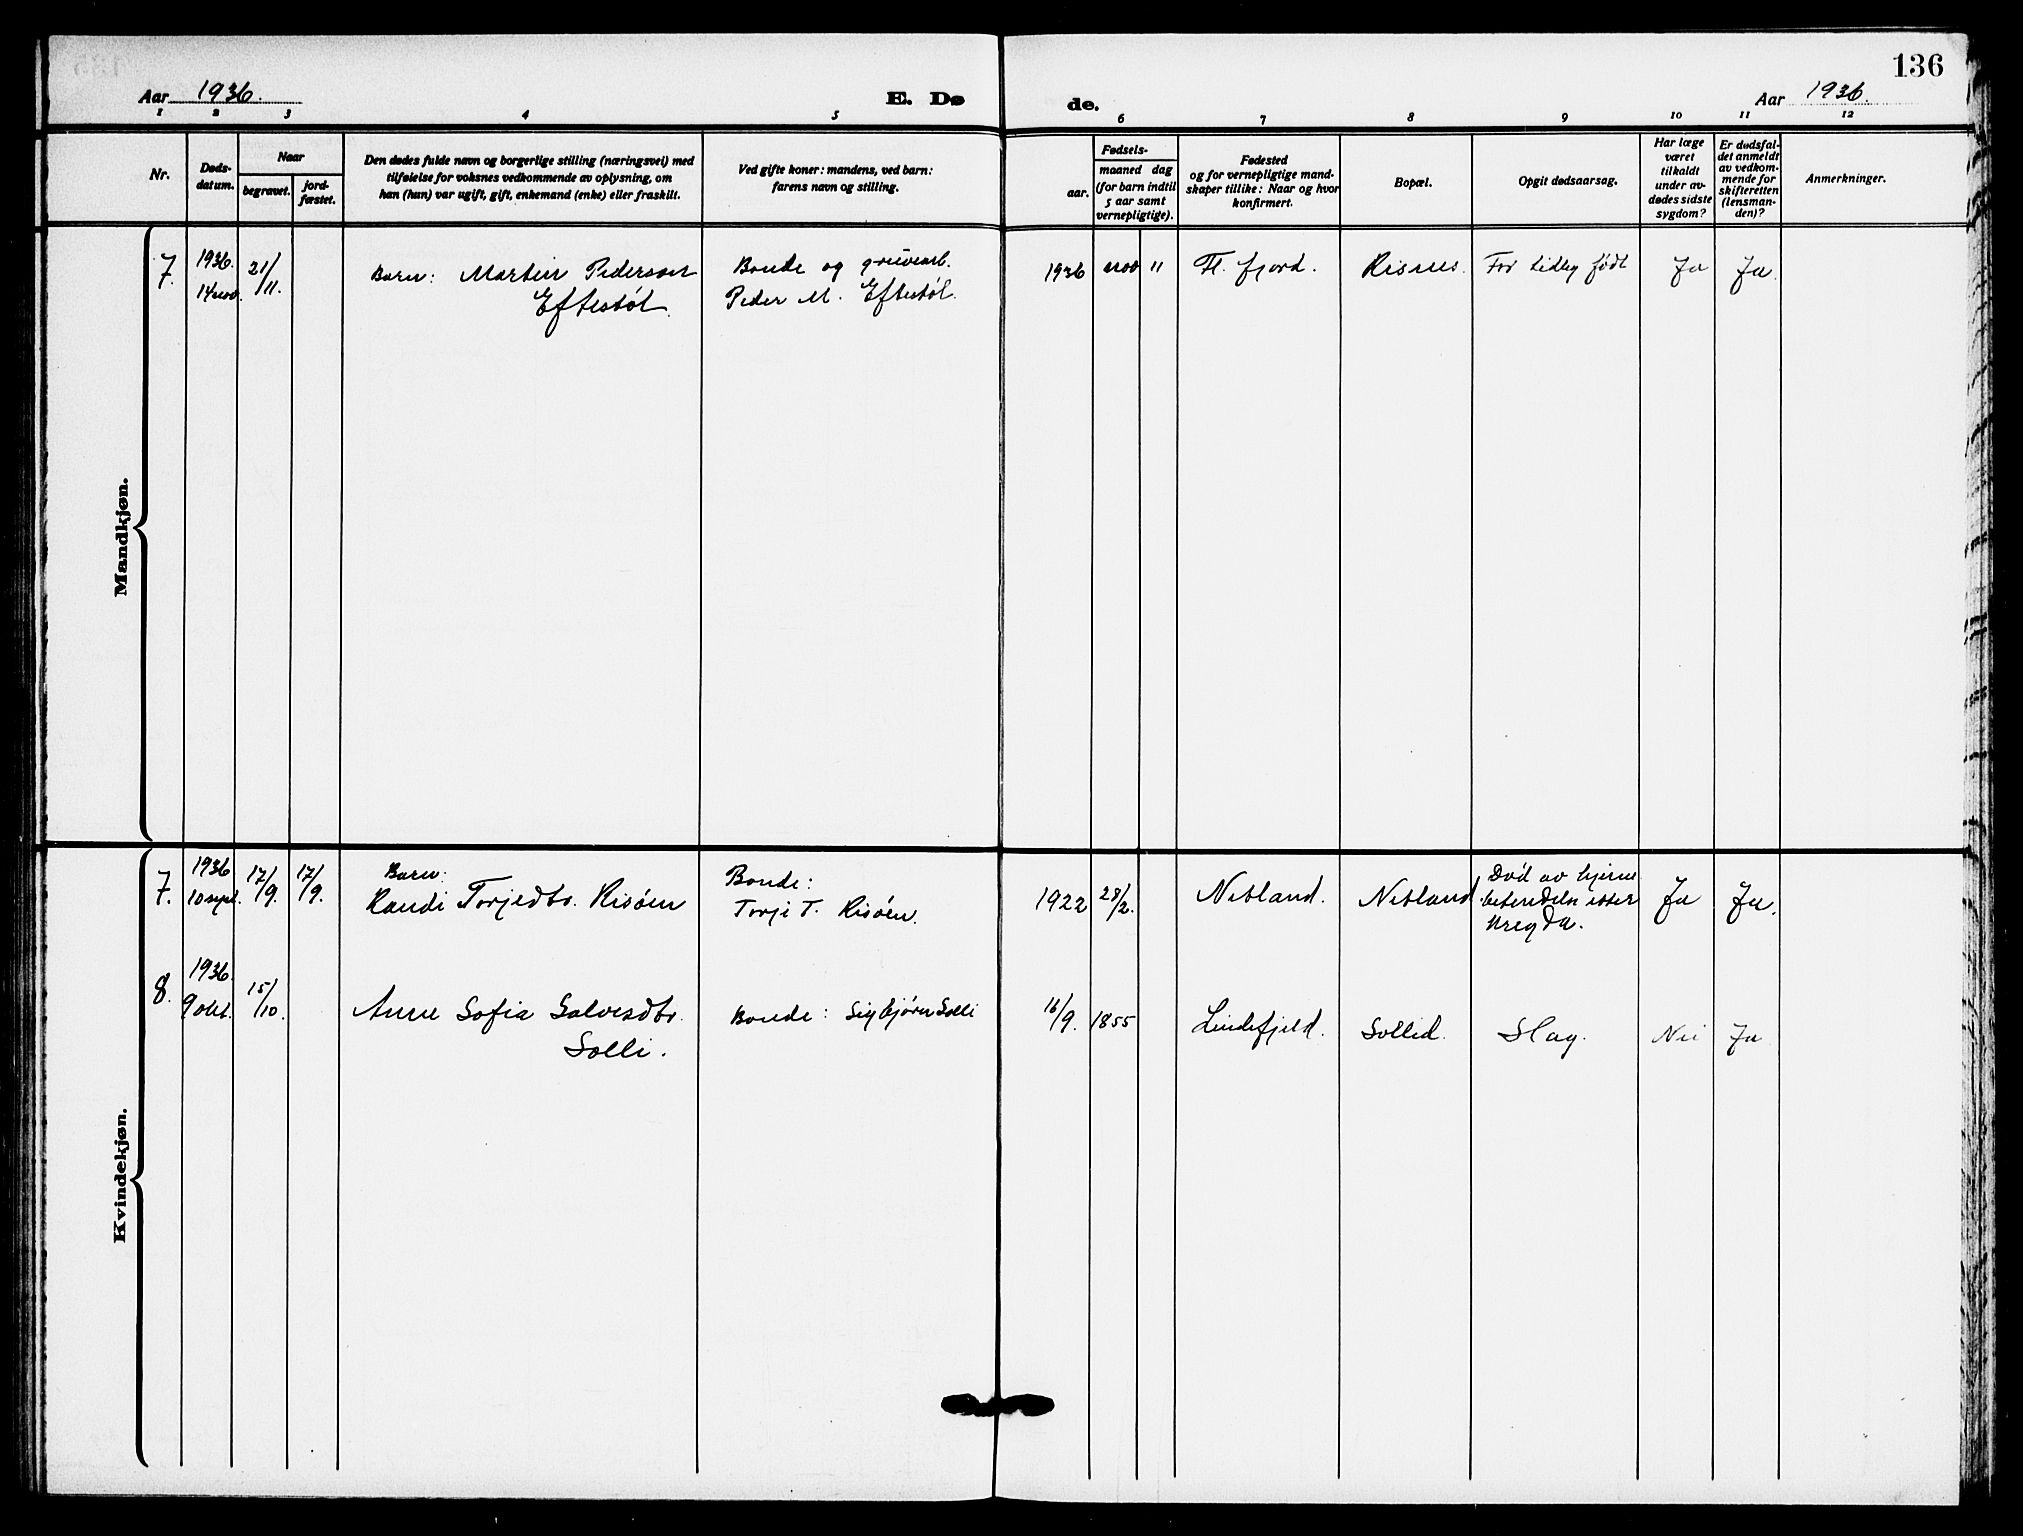 136
Aar 1936.
E. Dø
de.
Aar 1936.
1 2 3 4 5 6 7 8 9 10 11 12
Nr.
Døds-
datum.
Naar
begravet.
jord-
fæstet.
Den dødes fulde navn og borgerlige stilling (næringsvei) med
tilføielse for voksnes vedkommende av oplysning, om
han (hun) var ugift, gift, enkemand (enke) eller fraskilt.
Ved gifte koner: mandens, ved barn:
farens navn og stilling.
Fødsels-
aar.
maaned dag
(for barn indtil
5 aar samt
vernepligtige).
Fødested
og for vernepligtige mand-
skaper tillike: Naar og hvor
konfirmert.
Bopæl.
Opgit dødsaarsag.
Har læge
været
tilkaldt
under av-
dødes sidste
sygdom?
Er dødsfal-
det anmeldt
av vedkom-
mende for
skifteretten
(lensman-
den)?
Anmerkninger.
Mandkjøn.
7. 1936. 14 nov. 21/11. Barn: Martin Pederson Bonde og gruvearb. 1936 nov 11 Fl. fjord. Risnes. For tidlig født Ja Ja.
Eftestøl. Peder M. Eftestøl.
Kvindekjøn.
7. 1936 10 sept. 17/9. 17/9. Barn: Bonde: Død av hjerne
Randi Torjedtr. Risøen Torje T. Risøen. 1922 28/2. Netland. Netland betendelse etter Ja Ja.
8. 1936. 9 okt. 15/10. Anne Sofia Salvesdtr. Bonde: Sigbjørn Solli 16/9. 1855 Lindefjeld. Sollid. Slag. Nei Ja
Solli.